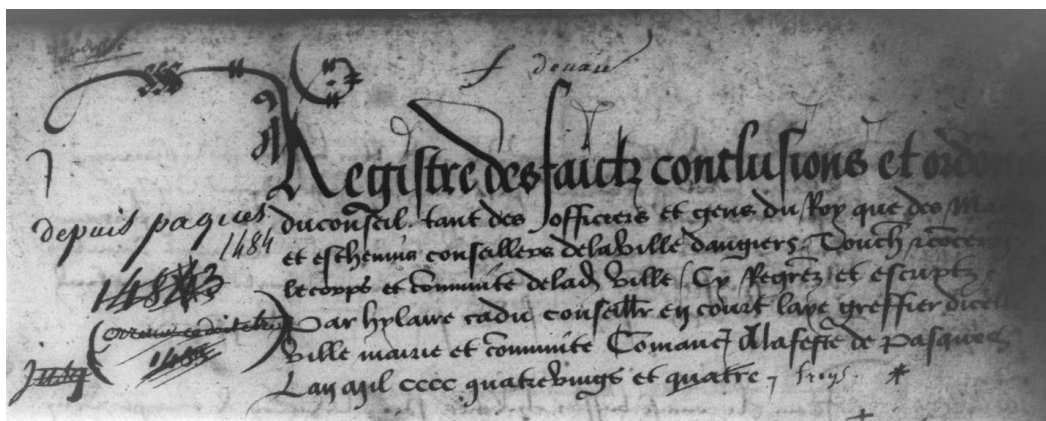 f devau
Registre des faictz conclusions et ordon
du conseil tant des officiers et gens du Roy que des Ma
et eschevins conseillers de la ville dangiers Touch concern
le corps et commite de lad ville Cy Regrez et escriptz
Par hylaire cadu conseiller en court laye greffier dicelle
ville mairie et commite Comanc A la feste de Pasques
Lan mil cccc quatrevings et quatre troys
depuis paques
1484
1483
1483